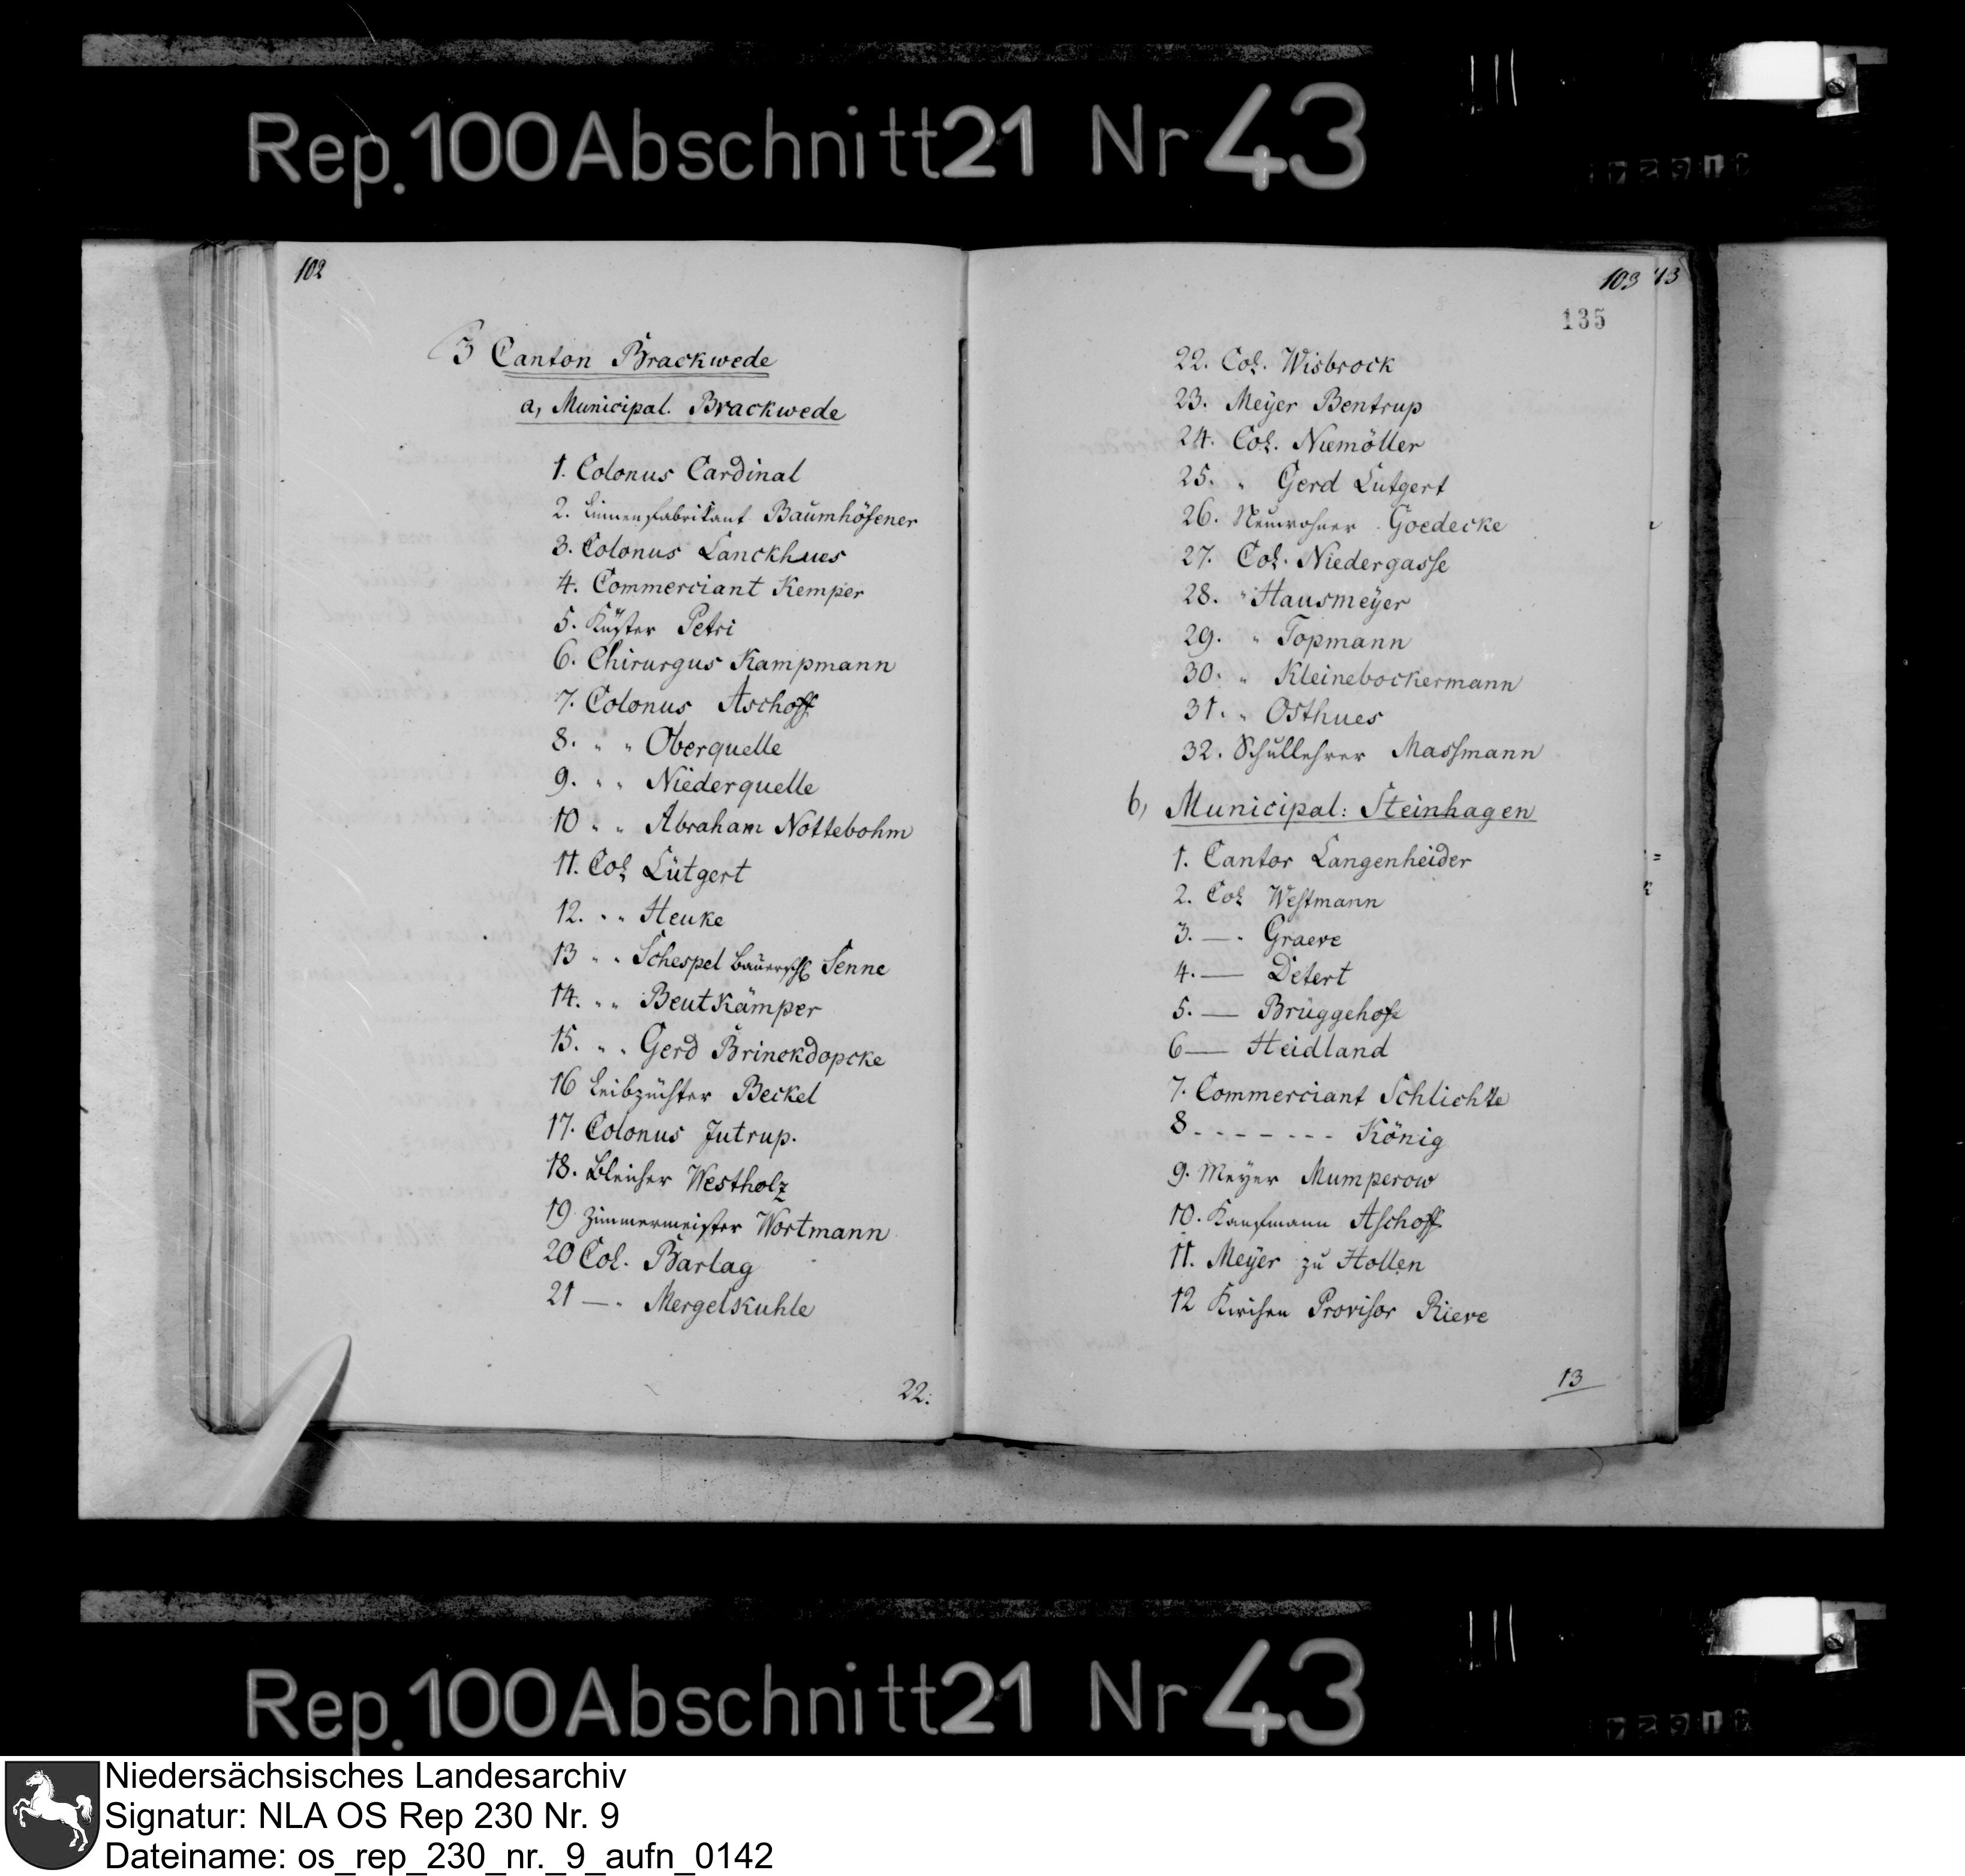 Rep. 100 Abschnitt 21 Nr 43
102
3 Canton Brackwede
a, Municipal. Brackwede
1. Colonus Cardinal
2. Linnenfabrikant Baumhöfener
3. Colonus Lanckhues
4. Commerciant Kemper
5. Küster Petri
6. Chirurgus Kampmann
7. Colonus Aschoff
8. " " Oberquelle
9. " " Niederquelle
10 " " Abraham Nottebohm
11. Col Lütgert
12. " " Heuke
13 " " Schespel Bauersch Senne
14. " " Beutkämper
15. " " Gerd Brinckdopcke
16 Leibzüchter Beckel
17. Colonus Jutrup.
18. Bleicher Westholz
19 Zimmermeister Wortmann
20 Col. Barlag
21 — " Mergelskuhle
22.
103 43
135
22. Col. Wisbrock
23. Meyer Bentrup
24. Col. Niemöller
25. " Gerd Lütgert
26. Neuwohner Goedecke
27. Col. Niedergasse
28. " Hausmeyer
29. " Topmann
30. " Kleinebockermann
31. " Osthues
32. Schullehrer Massmann
b, Municipal: Steinhagen
1. Cantor Langenheider
2. Col Westmann
3. — . Graeve
4. — Detert
5. — Brüggehofe
6 — Heidland
7. Commerciant Schlichte
8 - - - - - - - König
9. Meyer Mumperow
10. Kaufmann Aschoff
11. Meyer zu Hollen
12 Kirchen Provisor Rieve
13
Rep. 100 Abschnitt 21 Nr 43
Niedersächsisches Landesarchiv
Signatur: NLA OS Rep 230 Nr. 9
Dateiname: os_rep_230_nr._9_aufn_0142